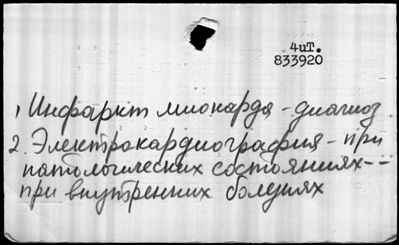 4иТ.
833920
1 Инфаркт миокарда - диагноз
2. Электрокардиография - при
патологических состояниях --
при внутренних болезнях